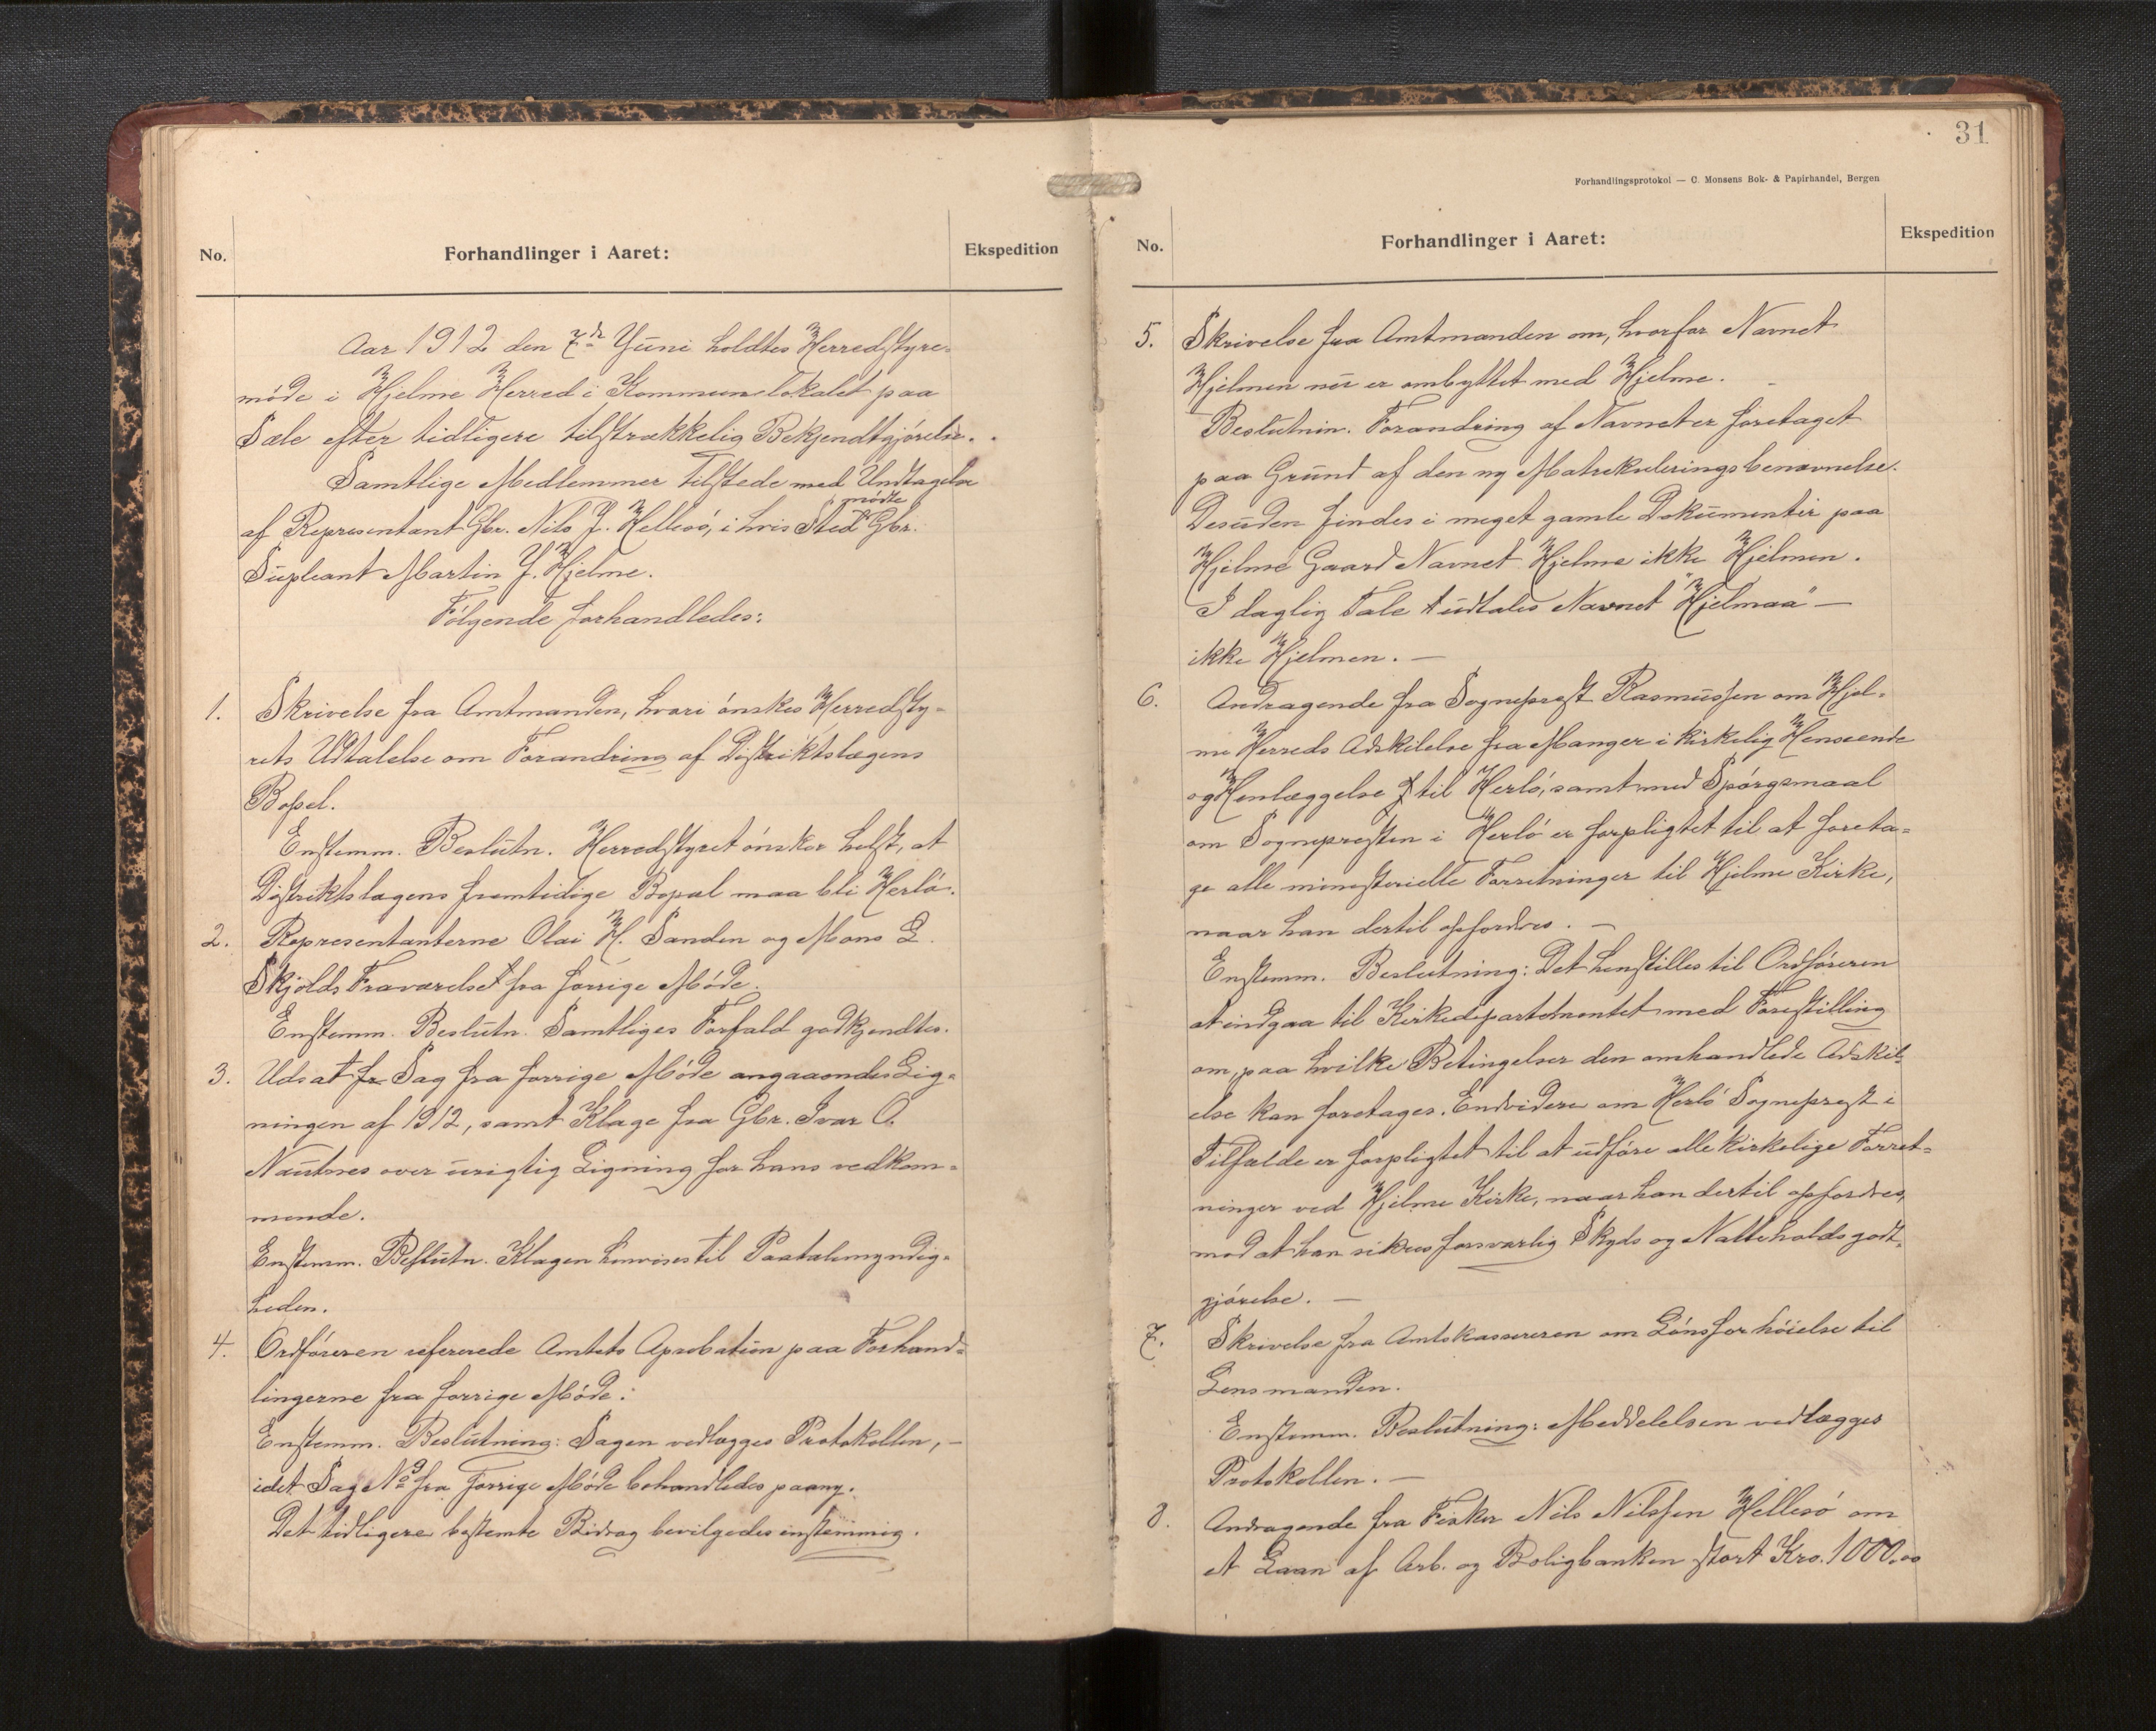 No.
Forhandlinger i Aaret:
Ekspedition
Aar 1912 den 7de Juni holdtes Herredstyre-
møde i Hjelme Herred i Kommunelokalet paa
Sæle efter tidligere tilstrækkelig Bekjendtgjørelse.
Samtlige Medlemmer tilstede med Undtagelse
af Representant Gbr. Nils J. Hellesø, i hvis Sted mødte Gbr.
Supleant Martin J. Hjelme.
Følgende forhandledes:
1. Skrivelse fra Amtmanden, hvori ønskes Herredsty-
rets Udtalelse om Forandring af Distriktslægens
Bopel.
Enstemm. Beslutn. Herredstyret ønsker helst, at
Distriktslægens fremtidige Bopæl maa bli Herlø.
2. Representanterne Olai H. Sanden og Mons L.
Skjolds Fraværelse fra forrige Møde.
Enstemm. Beslutn. Samtliges Forfald godkjendtes.
3. Udsat Sag fra forrige Møde angaaende Lig-
ningen af 1912, samt Klage fra Gbr. Ivar O.
Nautnes over urigtig Ligning for hans vedkom-
mende.
Enstemm. Beslutn. Klagen henvises til Paatalemyndig-
heden.
4. Ordføreren refererede Amtets Aprobation paa Forhand-
lingerne fra forrige Møde:
Enstemm. Beslutning: Sagen vedlægges Protokollen, —
idet Sag No 9 fra forrige Møde behandledes paany.
Det tidligere bestemte Bidrag bevilgedes enstemmig.
31
Forhandlingsprotokol — C. Monsens Bok- & Papirhandel, Bergen
No.
Forhandlinger i Aaret:
Ekspedition
5. Skrivelse fra Amtmanden om, hvorfor Navnet
Hjelmen nu er ombyttet med Hjelme.
Beslutnin. Forandring af Navnet er foretaget
paa Grund af den ny Matrekuleringsbenævnelse.
Desuden findes i meget gamle Dokumenter paa
Hjelme Gaard Navnet Hjelme ikke Hjelmen.
I daglig Tale udtales Navnet "Hjelmaa" —
ikke Hjelmen. —
6. Andragende fra Sogneprest Rasmussen om Hjel-
me Herreds Adskilelse fra Manger i kirkelig Henseende
og Henlæggelse til Herlø, samt med Spørgsmaal
om Sognepresten i Herlø er forpligtet til at foreta-
ge alle minesterielle Forretninger til Hjelme Kirke,
naar han dertil opfordres. —
Enstemm. Beslutning: Det henstilles til Ordføreren
at indgaa til Kirkedepartementet med Forestilling
om, paa hvilke Betingelser den omhandlede Adskil-
else kan foretages. Endvidere om Herlø Sogneprest i
Tilfælde er forpligtet til at udføre alle kirkelige Forret-
ninger ved Hjelme Kirke, naar han dertil opfordres,
mod at han sikres forsvarlig Skyds og Natteholdsgodt-
gjørelse. —
7. Skrivelse fra Amtskassereren om Lønsforhøielse til
Lensmanden.
Enstemm. Beslutning: Meddelelsen vedlægges
Protokollen. —
8. Andragende fra Fisker Nils Nilssen Hellesø om
et Laan af Arb. og Boligbanken stort Kro. 1000.00